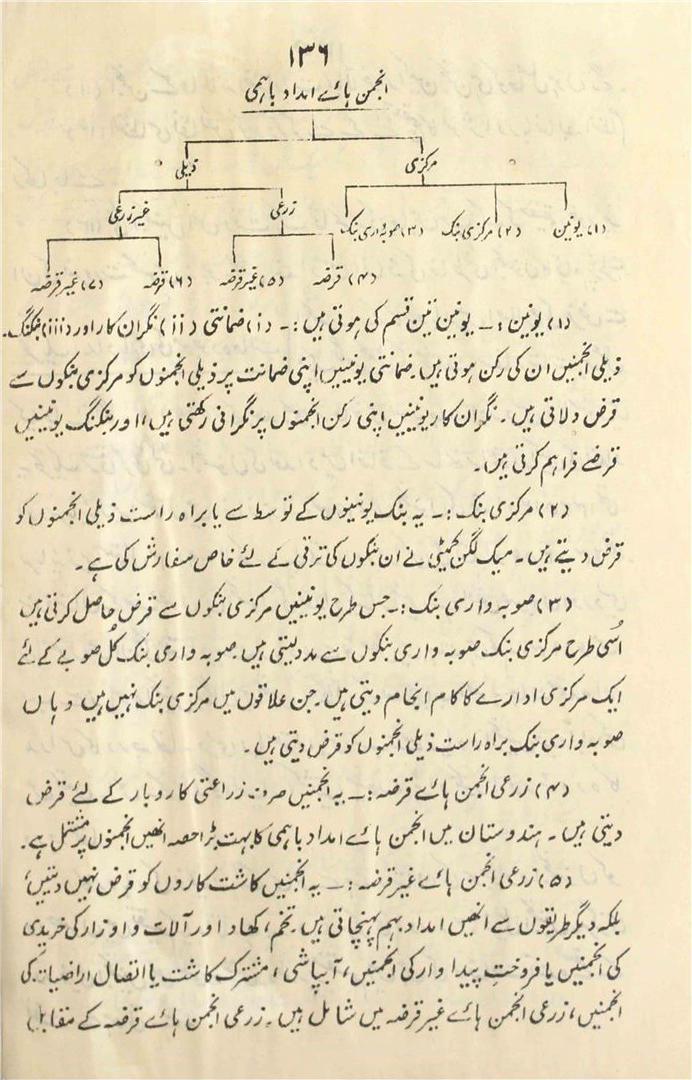 ۱۳۶
انجمن ہائے امداد باہمی
مرکزی ذیلی
زرعی غیرزرعی
(۱) یونین (۲) مرکزی بنک (۳) صوبہ واری بنک
(۴) قرضہ (۵) غیرقرضہ (۶) قرضہ (۷) غیرقرضہ
(۱) یونین :۔ یونین تین قسم کی ہوتی ہیں :۔ (i) ضمانتی (ii) نگران کار اور (iii) بنکنگ۔
ذیلی انجمنیں ان کی رکن ہوتی ہیں۔ ضمانتی یونینیں اپنی ضمانت پر ذیلی انجمنوں کو مرکزی بنکوں سے
قرض دلاتی ہیں۔ نگران کار یونینیں اپنی رکن انجمنوں پر نگرانی رکھتی ہیں، اور بنکنگ یونینیں
قرضے فراہم کرتی ہیں۔
(۲) مرکزی بنک :۔ یہ بنک یونینوں کے توسط سے یا براہ راست ذیلی انجمنوں کو
قرض دیتے ہیں۔ میک لگن کمیٹی نے ان بنکوں کی ترقی کے لئے خاص سفارش کی ہے۔
(۳) صوبہ واری بنک :۔ جس طرح یونینیں مرکزی بنکوں سے قرض حاصل کرتی ہیں
اُسی طرح مرکزی بنک صوبہ واری بنکوں سے مدد لیتی ہیں۔ صوبہ واری بنک کُل صوبے کے لئے
ایک مرکزی ادارے کا کام انجام دیتی ہیں۔ جن علاقوں میں مرکزی بنک نہیں ہیں وہاں
صوبہ واری بنک براہ راست ذیلی انجمنوں کو قرض دیتی ہیں۔
(۴) زرعی انجمن ہائے قرضہ :۔ یہ انجمنیں صرف زراعتی کاروبار کے لئے قرض
دیتی ہیں۔ ہندوستان میں انجمن ہائے امداد باہمی کا بہت بڑا حصہ انھیں انجمنوں پر مشتمل ہے۔
(۵) زرعی انجمن ہائے غیرقرضہ :۔ یہ انجمنیں کاشت کاروں کو قرض نہیں دیتیں
بلکہ دیگر طریقوں سے انھیں امداد بہم پہنچاتی ہیں۔ تخم، کھاد اور آلات و اوزار کی خریدی
کی انجمنیں یا فروختِ پیداوار کی انجمنیں، آبپاشی، مشترک کاشت یا اتصال اراضیات کی
انجمنیں، زرعی انجمن ہائے غیرقرضہ میں شامل ہیں۔ زرعی انجمن ہائے قرضہ کے مقابل